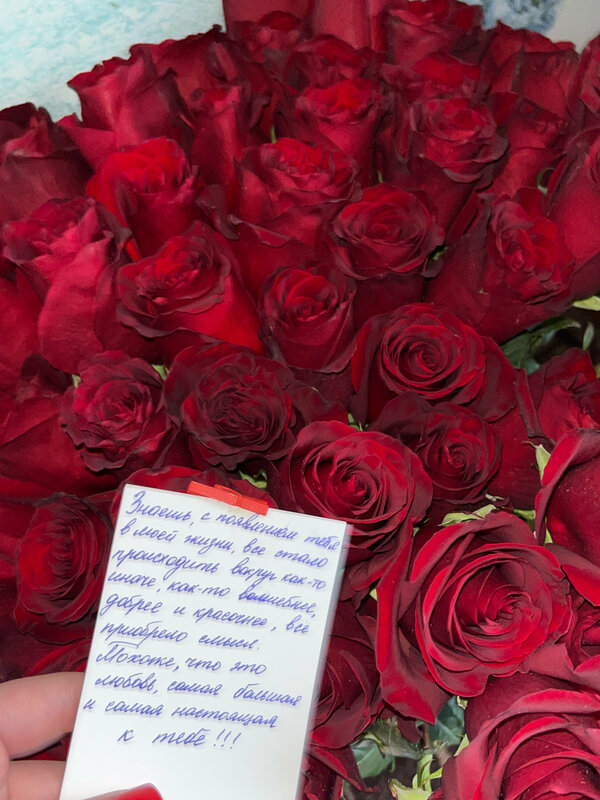 Знаешь, с появлением тебя
в моей жизни, все стало
происходить вокруг как-то
иначе, как-то волшебнее,
добрее и красочнее, всё
приобрело смысл.
Похоже, что это
любовь, самая большая
и самая настоящая
к тебе!!!